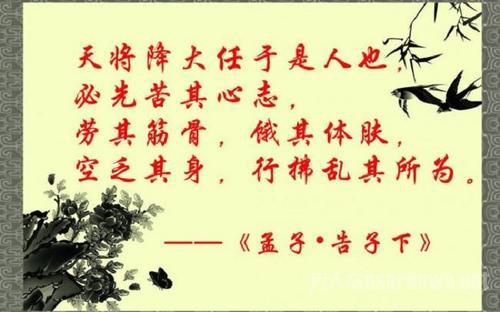 天将降大任于是人也，
必先苦其心志，
劳其筋骨，饿其体肤，
空乏其身，行拂乱其所为。
——《孟子•告子下》